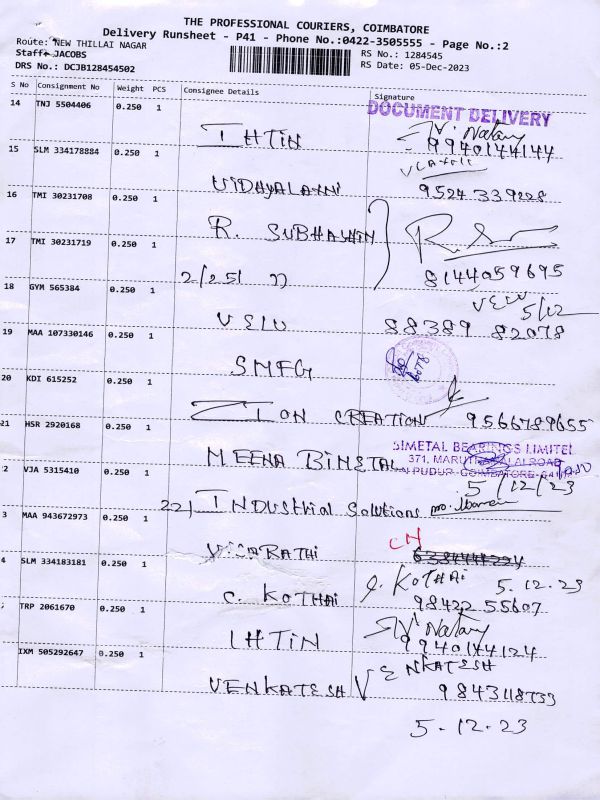 THE PROFESSIONAL COURIERS, COIMBATORE
Delivery Runsheet - P41 - Phone No.:0422-3505555 - Page No.:2
Route: NEW THILLAI NAGAR
RS No.: 1284545
Staff: JACOBS
RS Date: 05-Dec-2023
DRS No.: DCJB128454502
S No Consignment No Weight PCS Consignee Details Signature
DOCUMENT DELIVERY
14 TNJ 5504406 0.250 1
IHTIN 9940144144
15 SLM 334178884 0.250 1
9524339228
16 TMI 30231708 0.250 1
R. SUBHASHIN
17 TMI 30231719 0.250 1
2/251 8144059695
18 GYM 565384 0.250 1
VELU 5/12
VELU 88389 82078
19 MAA 107330146 0.250 1
SMFG
20 KDI 615252 0.250 1
ZION CREATION 9566789655
21 HSR 2920168 0.250 1
BIMETAL BEARINGS LIMITED
371,
MEENA BIMETAL PUDUR COIMBATORE
2 VJA 5315410 0.250 1
5/12/23
221 INDUSthial Solutions
3 MAA 943672973 0.250 1
CN
4 SLM 334183181 0.250 1
C. KOTHAI 5.12.23
C. KOTHAI 98422 55607
TRP 2061670 0.250 1
V. Natary
IHTIN 9940144124
IXM 505292647 0.250 1
VENKATESH
VENKATESH
5.12.23